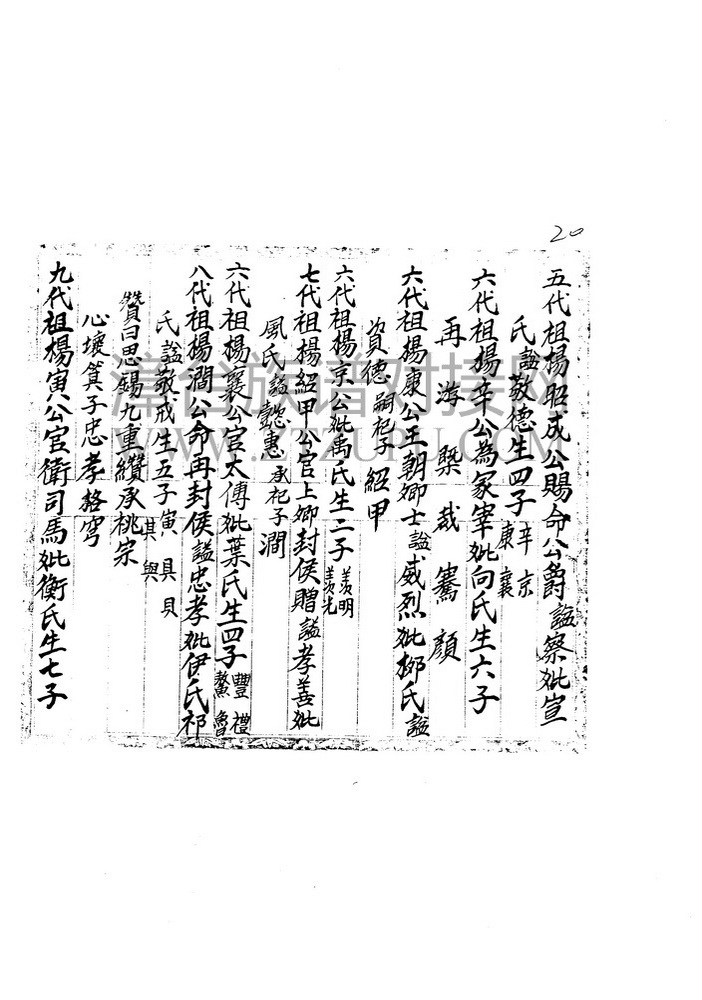 20
五代祖楊昭成公賜命公爵謚察妣宣
氏謚敬德生四子辛京康襄
六代祖楊辛公為冢宰妣向氏生六子
再游槩裁騫顏
六代祖楊康公王朝卿士謚威烈妣柳氏謚
資德嗣祀子紹甲
六代祖楊京公妣禹氏生二子羨明羨光
七代祖楊紹甲公官上卿封侯贈謚孝善妣
風氏謚懿惠承祀子澗
六代祖楊襄公官太傅妣葉氏生四子豐禮鰲魯
八代祖楊澗公命再封侯謚忠孝妣伊氏祁
氏謚敬戒生五子寅具貝其與
贊曰思錫九重纘承桃宗
心壞箕子忠孝格穹
九代祖楊寅公官衛司馬妣衡氏生七子
津台族谱对接网
WWW.ZTZUPU.COM